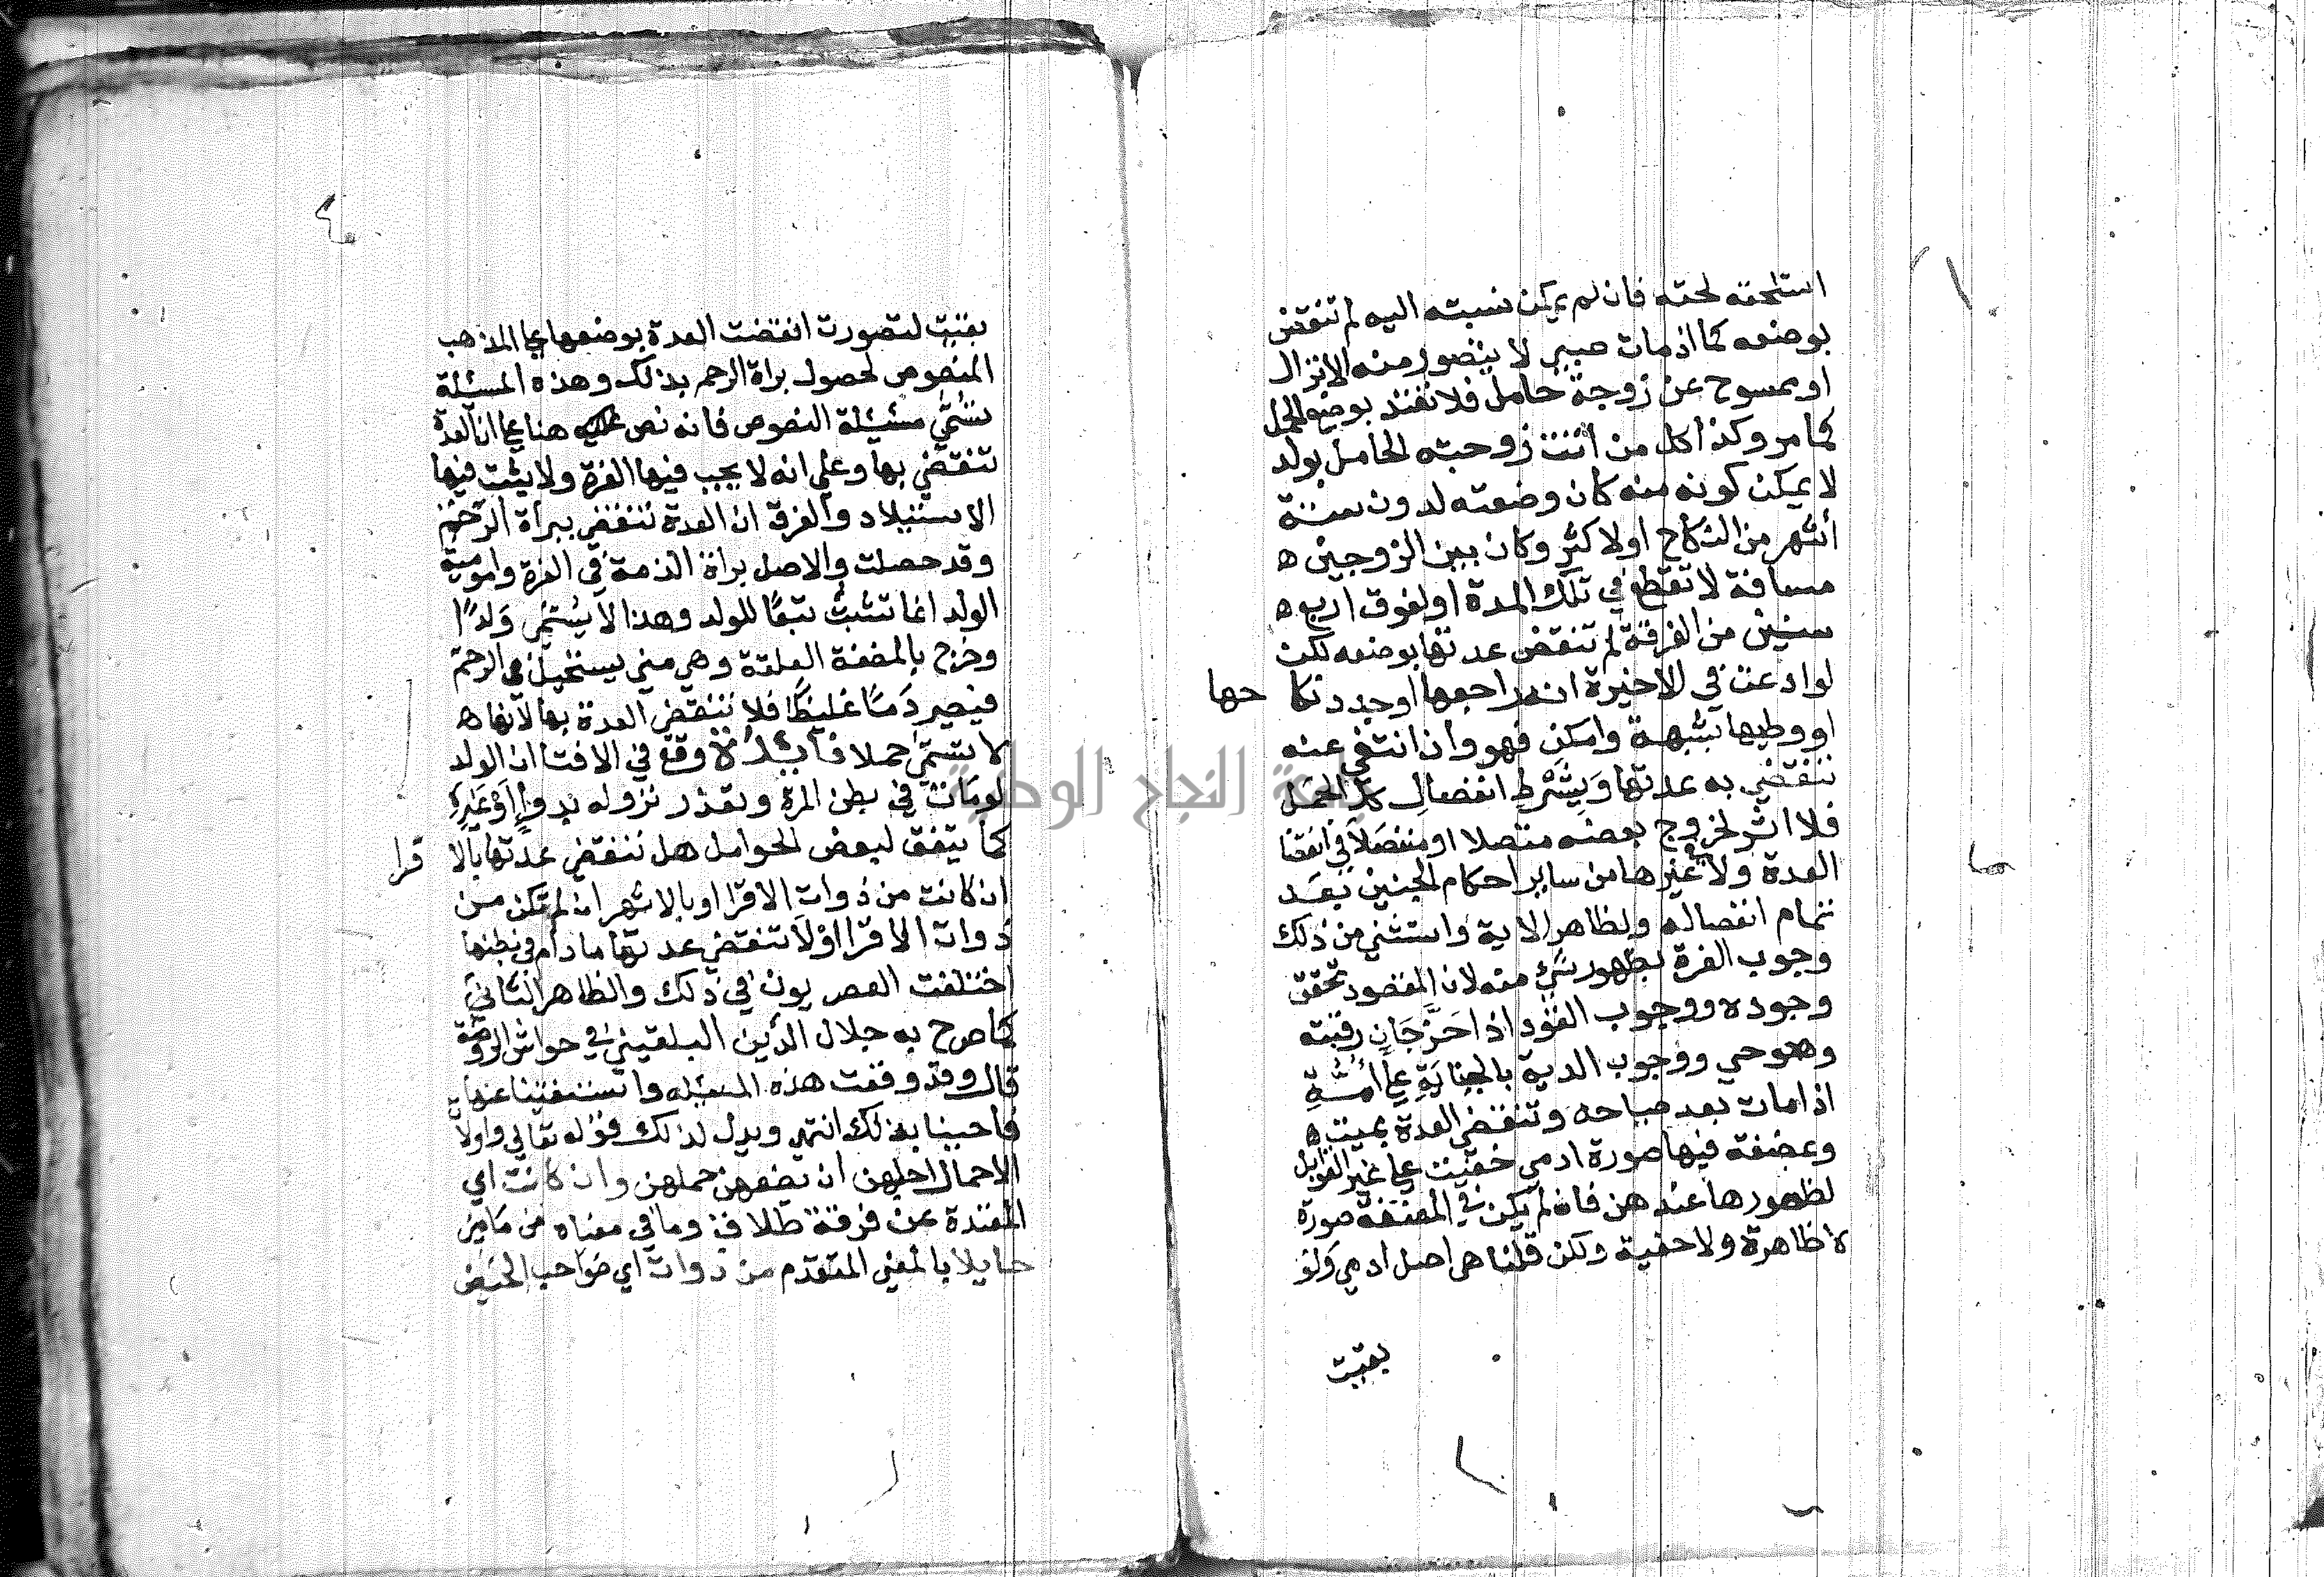 استلحقه لحقه فان لم يمكن نسبته اليه لم تنقض
بوضعه كما اذ مات صبي لا يتصور منه الانزال
او ممسوح عن زوجة حامل فلا تعتد بوضع الحمل
كما مر وكذا كل من اتت زوجته الحامل بولد
لا يمكن كونه منه كان وضعته لدون ستة
أشهر من النكاح او لاكثر وكان بين الزوجين ه
مسافة لا تقطع في تلك المدة او لفوق اربع ه
سنين من الفرقة لم تنقض عدتها بوضعه لكن
لو ادعت في الاخيرة انه راجعها او جدد نكا حها
او وطيها بشبهة وامكن فهو وان انتفى عنه
تنقضي به عدتها ويشرط انفصال كل الحمل
فلا اثر لخروج بعضه متصلا او منفصلا في انقضا
العدة ولا غيرها من ساير احكام الجنين بعد
تمام انفصاله ولظاهر الاية واستثني من ذلك
وجوب الغرة بظهور شي منه لان المقصود تحقق
وجوده ووجوب القود اذا حز جان رقبته
وهو حي ووجوب الدية بالجناية على أمه
اذا مات بعد صياحه وتنقضي العدة بميت ه
ومضغة فيها صورة ادمي خفيت على غير القوابل
لظهورها عندهن فان لم يكن في المضغة صورة
لا ظاهرة ولا خفية ولكن قلنا هي اصل ادمي ولو
بقيت
بقيت لتصورت انقضت العدة بوضعها على المذهب
المنصوص لحصول براة الرحم بذلك وهذه المسئلة
تسمي مسئلة النصوص فانه نص عليه هنا على ان العدة
تنقضي بها وعلى انه لا يجب فيها الغرة ولا يثبت فيها
الاستيلاد والفرق ان العدة تنقضي ببراة الرحم
وقد حصلت والاصل براة الذمة في الغرة واموميه
الولد انما تثبت تبعًا للولد وهذا لا يسمى ولدًا
وخرج بالمضغة العلقة وهي مني يستحيل في الرحم
فيصير دمًا غليظًا فلا تنقضي العدة بها لانها ه
لا تسمي حملا فايدة وقع في الافتا ان الولد
لو مات في بطن المرة وتعذر نزوله بدواء او غيره
كما يتفق لبعض الحوامل هل تنقضي عدتها بالا قرا
ان كانت من ذوات الاقرا او بالاشهر ان لم تكن من
ذوات الاقرا او لا تنقضي عدتها ما دام في بطنها
اختلفت العصريون في ذلك والظاهر الثاني
كما صرح به جلال الدين البلقيني في حواشي الروضة
قال وقد وقعت هذه المسئله واستفتينا عنها
فاجبنا بذلك انتهى ويدل لذلك قوله تعالي واولا
الاحمال اجلهن ان يضعن حملهن وان كانت اي
المعتدة عن فرقة طلاق وما في معناه من مامر
حايلا بالمعنى المتقدم من ذوات اي صواحب الحيض